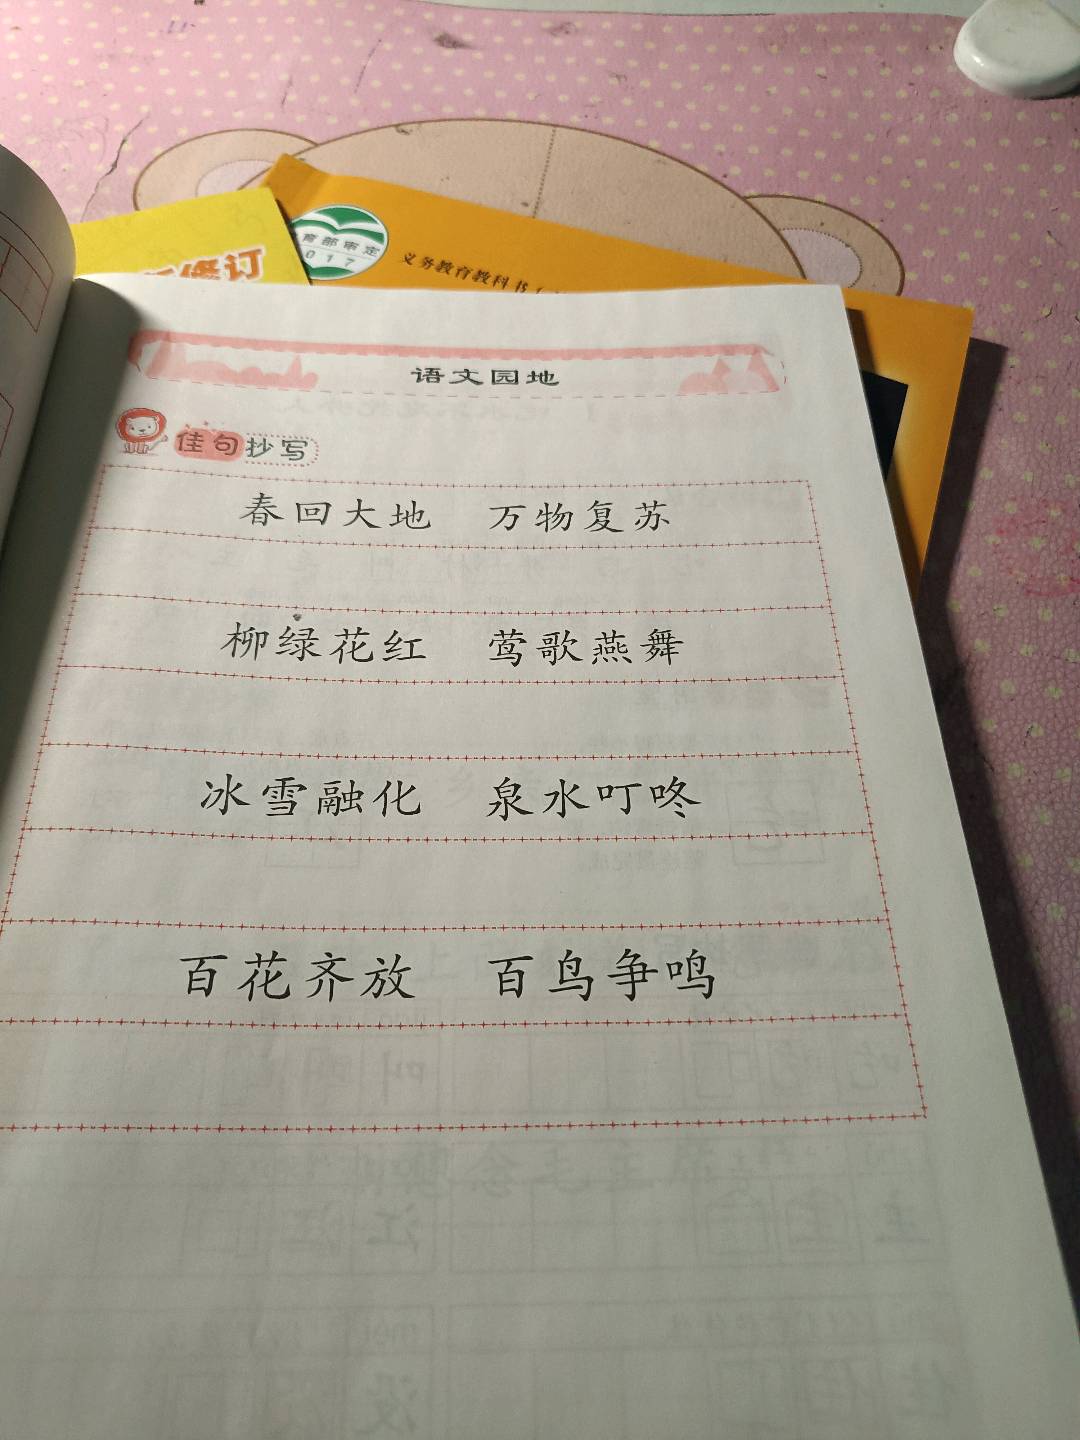 修订
育部审定
017
义务教育教科书
语文园地
佳句抄写
春回大地 万物复苏
柳绿花红 莺歌燕舞
冰雪融化 泉水叮咚
百花齐放 百鸟争鸣